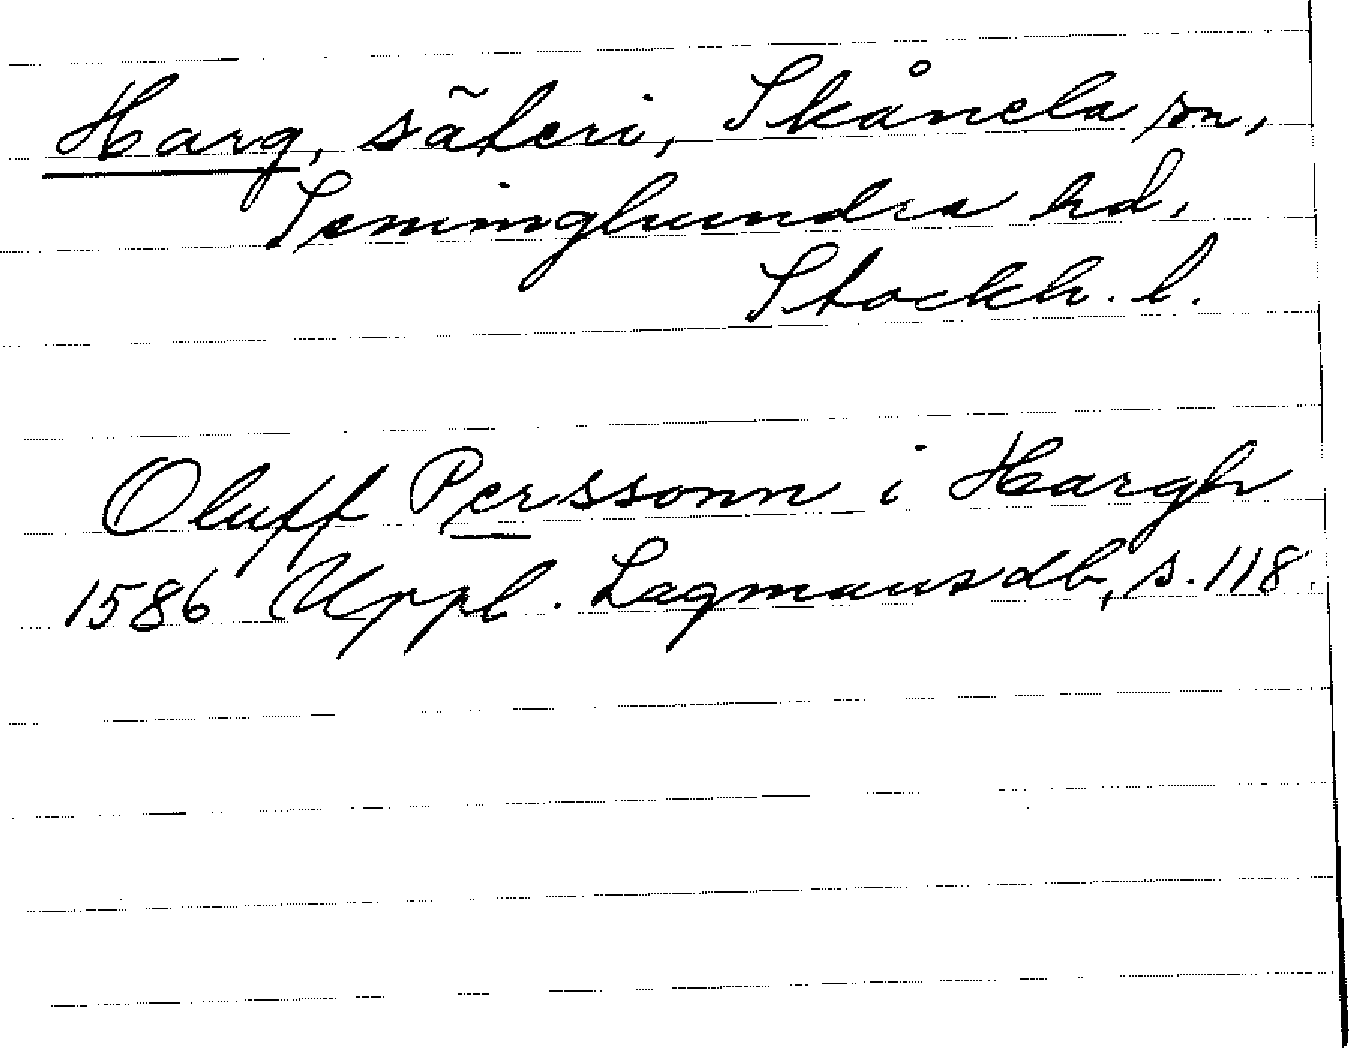 Harg, säteri, Skånela sn,
Seminghundra hd,
Stockh. l.
Oluff Perssonn i Hargh
1586 Uppl. Lagmansdb, s. 118